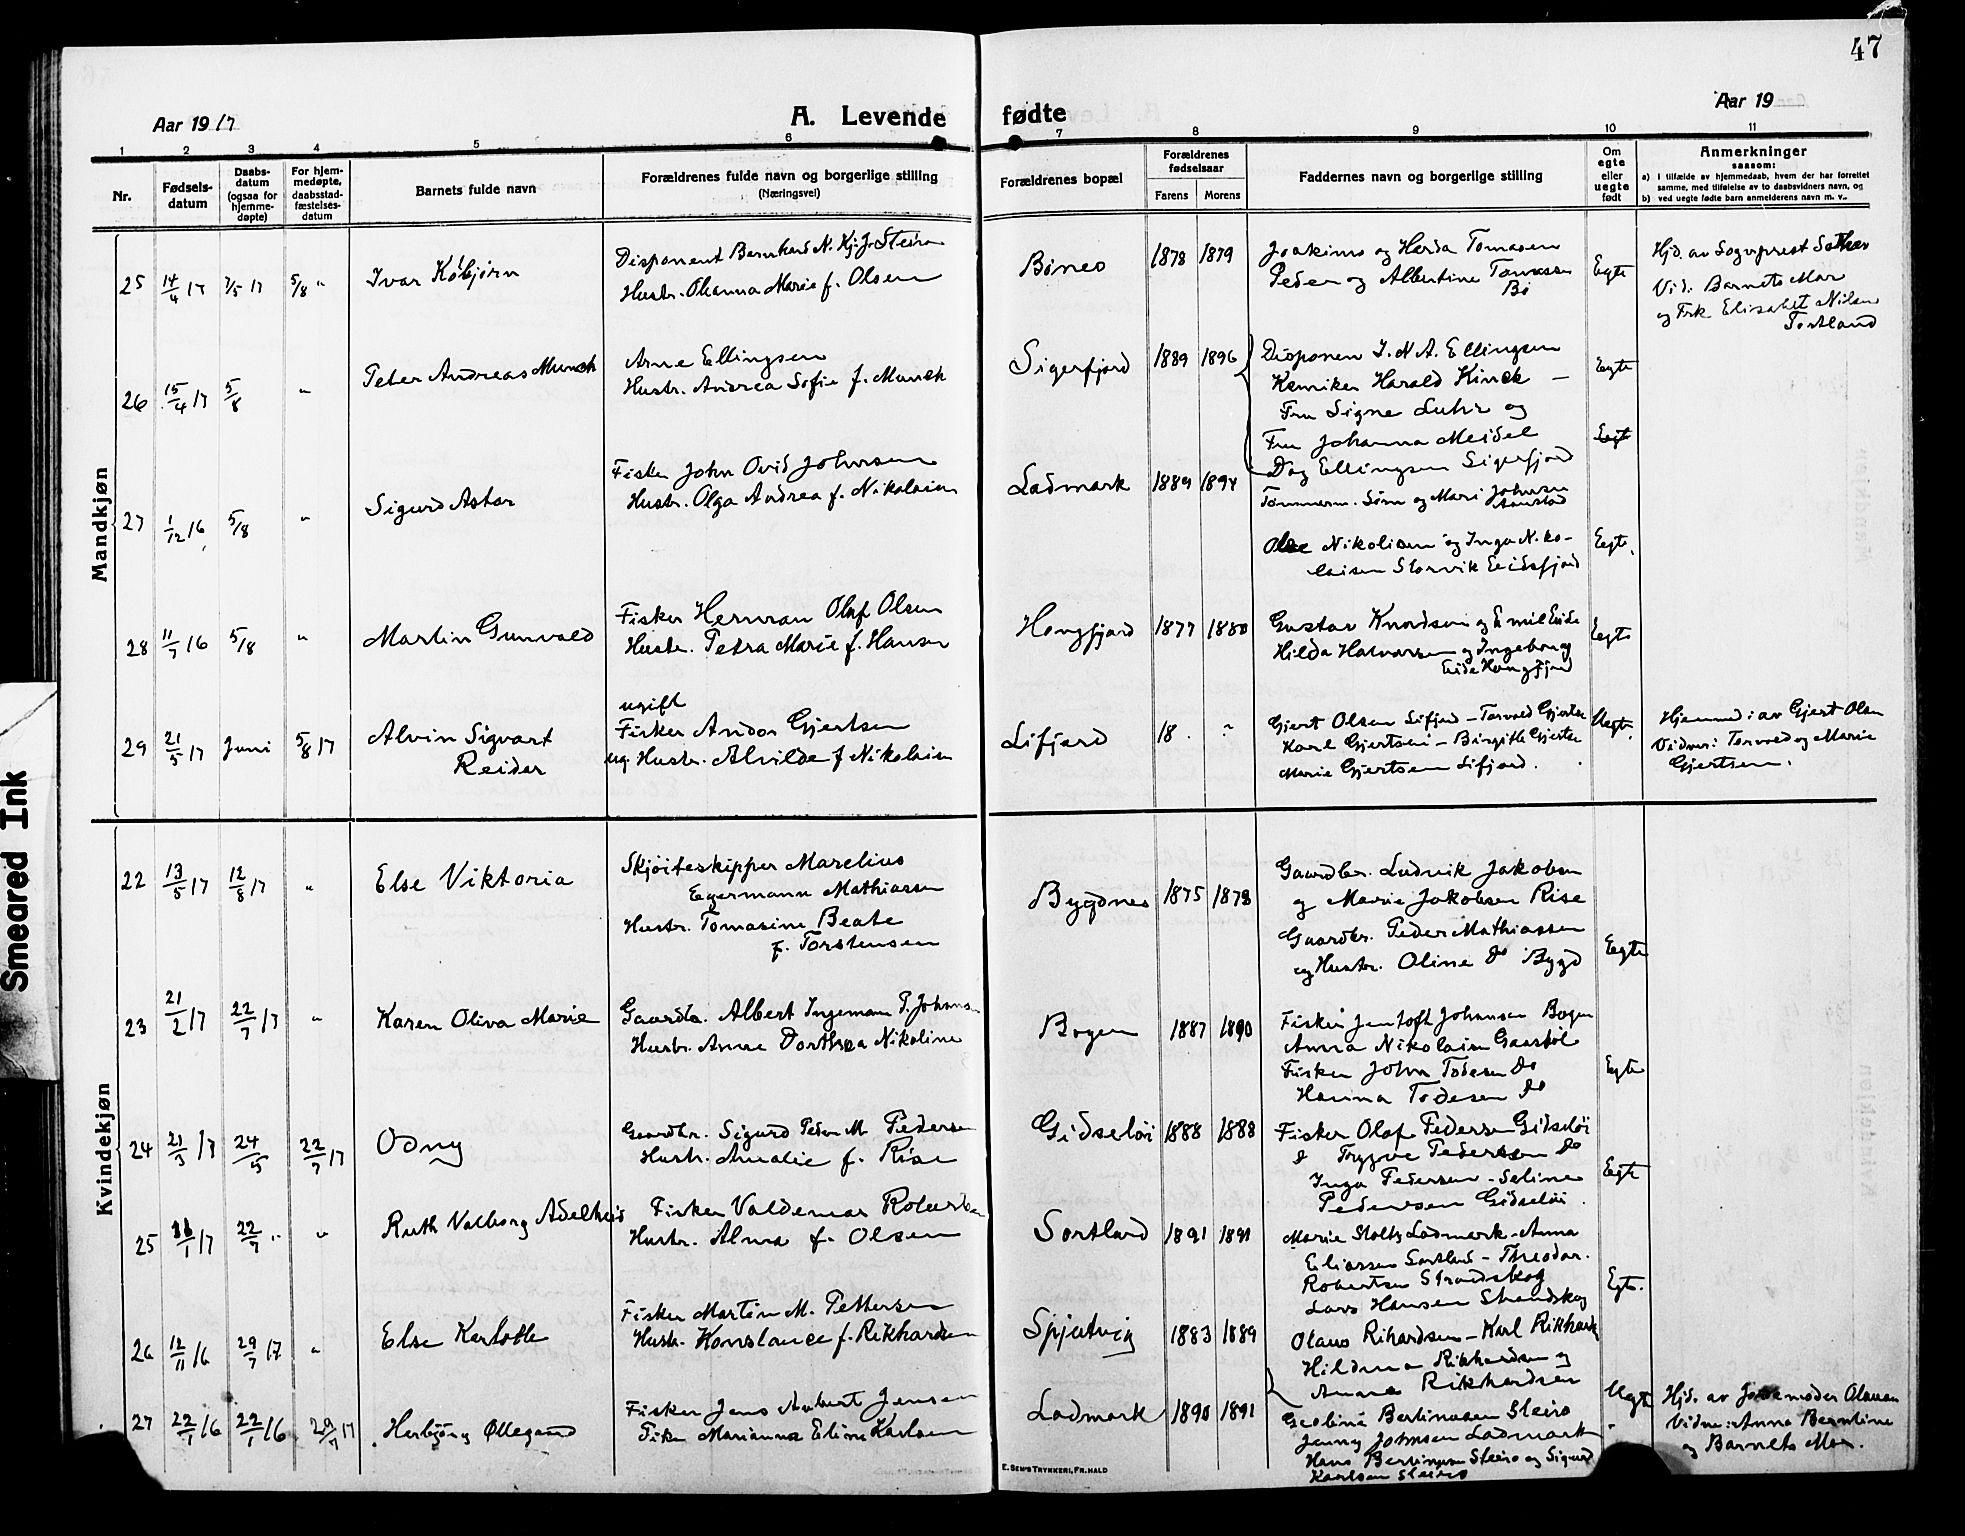 47
Aar 1917
A. Levende fødte
Aar 19
1 2 3 4 5 6 7 8 9 10 11
Nr.
Fødsels-
datum
Daabs-
datum
(ogsaa for
hjemme-
døpte)
For hjem-
medøpte,
daabsstad-
fæstelses-
datum
Barnets fulde navn
Forældrenes fulde navn og borgerlige stilling
(Næringsvei)
Forældrenes bopæl
Forældrenes
fødselsaar
Farens Morens
Faddernes navn og borgerlige stilling
Om
egte
eller
uegte
født
Anmerkninger
saasom:
a) i tilfælde av hjemmedaab, hvem der har forrettet
samme, med tilføielse av to daabsvidners navn, og
b) ved uegte fødte barn anmelderens navn m. v.
Mandkjøn
25 14/4 17 7/5 17 5/8 " Ivar Kobjørn
Disponent Bernhard N. Kj. J. Steiro
Hustr. Oleanna Marie f. Olsen
Bøneo 1878 1879
Joakims og Herda Tomasen
Peder og Albertine Tomassen
Bø
Egte
Hjd. av Sogneprest
Vid: Barnets Mor
og Frk Elisabet Nilsen
Sortland
26 15/4 17 5/8 " Peter Andreas Munch
Arne Ellingsen
Hustr. Andrea Sofie f. Munch
Sigerfjord 1889 1896
Disponen I. N. A. Ellingsen
Kemiker Harald Kinck –
Fru Signe Luhr og
Fru Johanna Meidel
Dag Ellingsen Sigerfjord
Eegte
Eegt
27 1/12 16 5/8 " Sigurd Astor
Fisker John Ovid Johnsen
Hustr. Olga Andrea f. Nikolaisen
Ladmark 1889 1894
Tømmerm. Sørn og Mari Johnsen
Nikolisen og Inga Niko-
laisen Storvik Eidsfjord
Eegte.
28 11/7 16 5/8 " Martin Gunvald
Fisker Herman Olaf Olsen
Hustr. Petra Marie f. Hansen
Hongfjord 1877 1880
Gustav Knudsen og Emil Eide
Hilda Halvorsen og Ingeborg
Eide Hongfjord
Eegte
29 21/5 17 Juni 5/8 17 Alvin Sigvart
Reidar
ugift
Fisker Andor Gjertsen
ug. Hustr. Alvilde f Nikolaisen
Lifjord 18 . "
Gjert Olsen Lifjord – Torvald Gjertsen
Karl Gjertsen – Birgitte Gjertsen
Marie Gjertsen Lifjord.
Uegte.
Hjemmed: av Gjert Olsen
Vidner: Torvald og Marie
Gjertsen.
Kvindekjøn
22 13/5 17 12/8 17 " Else Viktoria
Skjøiteskipper Marelius
Egermann Mathiassen
Hustr. Tomasine Beate
f. Torstensen
Bygdnes 1875 1878
Gaardbr. Ludvik Jakobsen
og Marie Jakobsen Rise
Gaardbr. Peder Mathiassen
og Hustr. Oline do Bygd
Eegte
23 21/2 17 22/7 17 " Karen Oliva Marie
Gaardbr. Albert Ingemann P. Johansen
Hustr. Anna Dorthea Nikoline
Bogen 1887 1890
Fisker Jentoft Johansen Bogen
Anna Nikolaisen Gaasbøl
Fisker John Todesen do
Hanna Todesen do
Eegte
24 21/3 17 24/5 22/7 17 Odny
Gaardbr. Sigurd Peder M. Pedersen
Hustr. Amalie f. Rise
Gidseløi 1888 1888
Fisker Olaf Pedersen Gidseløi
d Trygve Pedersen do
Inga Pedersen – Seline
Pedersen Gidseløi.
Eegte
25 /1 17 22/7 " " Ruth Valborg Adelheid
Fisker Valdemar Robertsen
Hustr. Alma f. Olsen
Sortland 1891 1891
Marie Stolts Ladmark – Anna
Eliassen Sortland – Theodor.
Robertsen Strandskog
Lars Hansen Strandskog
Egte.
26 12/11 16 29/7 17 " Else Karlotte
Fisker Martin M. Pettersen
Hustr. Konstance f. Rikhardsen
Spjutvig 1883 1889
Olaus Rihardsen – Karl Rikhards
Hildma Rikhardsen og
Anna Rikhardsen
27 22/1 16 22/1 16 29/7 17 Herbjørg Øllegaard
Fisker Jens Aubert Jensen
Pike Marianna Eline Karlsen
Ladmark 1890 1891
Bertinusen Steiro
Jenny Johnsen Ladmark
Hans Bertinusen Steiro og Sigurd
Karlsen Steiro
Uegte
Hjd. av Jordemoder
Vidne: Anna Berntine
og Barnets Mor.
E. SEM'S TRYKKERI, FR.HALD
Smeared Ink